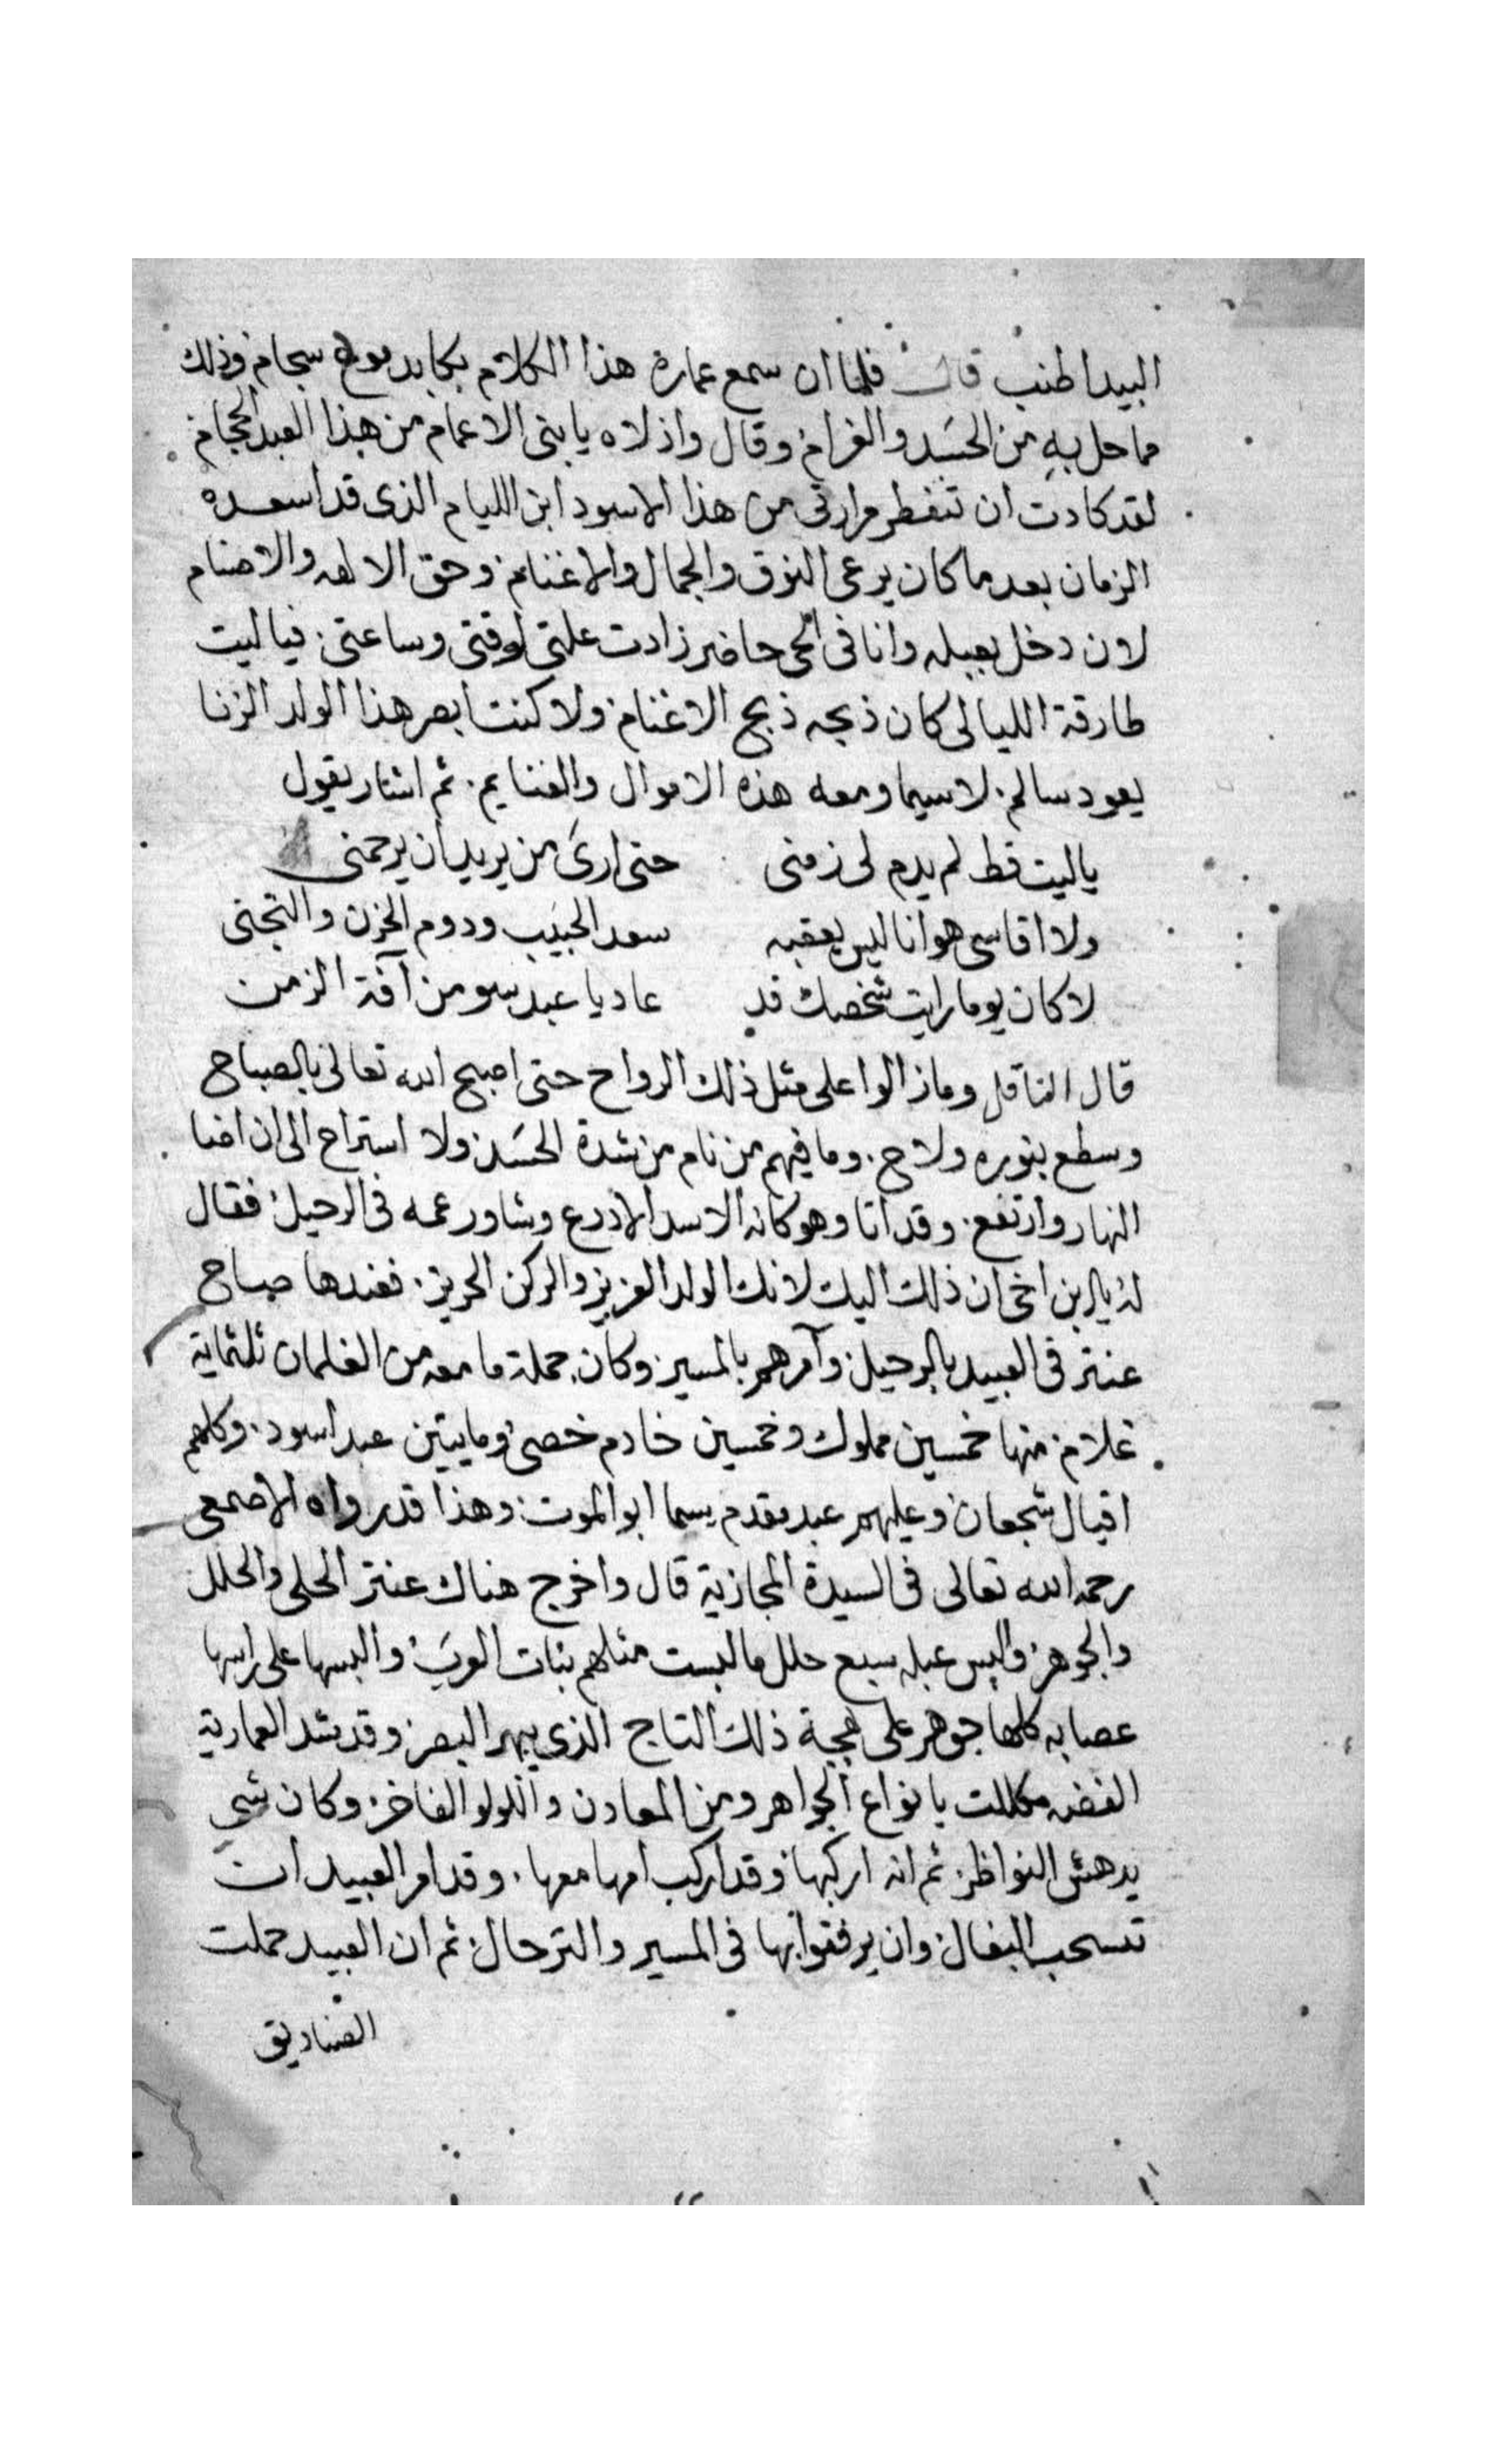 البيدا طنب قال فلما ان سمع عمارة هذا الكلام بكا بدموع سجام وذلك
مما حل به من الحسد والغرام وقال واذلاه يا بنى الاعمام من هذا العبد الحجام
لقد كادت ان تنفطر مرارتى من هذا الاسود ابن الليام الذى قد اسعده
الزمان بعد ما كان يرعى النوق والجمال والاغنام وحق الالهه والاصنام
لان دخل بعبله وانا فى الحى حاضر زادت علتى لوقتى وساعتى فيا ليت
طارقة الليالى كان ذبحه ذبح الاغنام ولا كنت ابصر هذا الولد الزنا
يعود سالم لاسيما ومعه هذه الاموال والغنايم ثم اشار يقول
ياليت قط لم يدم لى زمنى حتى ارى من يريد ان يرحمنى
ولا اقاسى هوانا ليس يعقبه سعد الحبيب ودوم الحزن والتجنى
لا كان يوما رايت شخصك قد عاد يا عبد سو من آفة الزمن
قال الناقل وما زالوا على مثل ذلك الرواح حتى اصبح الله تعالى بالصباح
وسطع بنوره ولاح وما فيهم من نام من شدة الحسد ولا استراح الى ان اضا
النهار وارتفع وقد اتا وهو كانه الاسد الادرع وشاور عمه فى الرحيل فقال
له يا ابن اخى ان ذلك اليك لانك الولد العزيز والركن الحريز فعندها صاح
عنتر فى العبيد بالرحيل وآمرهم بالمسير وكان جملة ما معه من الغلمان ثلثماية
غلام منها خمسين مملوك وخمسين خادم خصى ومايتين عبد اسود وكلهم
اقيال شجعان وعليهم عبد مقدم يسما ابو الموت وهذا قد رواه الاصمعى
رحمه الله تعالى فى السيرة الحجازية قال واخرج هناك عنتر الحلى والحلل
والجوهر والبس عبله سبع حلل ما لبست مثلهم بنات العرب والبسها على راسها
عصابه كلها جوهر على ذلك التاج الذى يبهر البصر وقد شد العمارية
الفضه مكللت بانواع الجواهر ومن المعادن واللولو الفاخر وكان شى
يدهش النواظر ثم انه اركبها وقد اركب امها معها وقد امر العبيد ان
تسحب البغال وان يرفقوا بها فى المسير والترحال ثم ان العبيد حملت
الصناديق